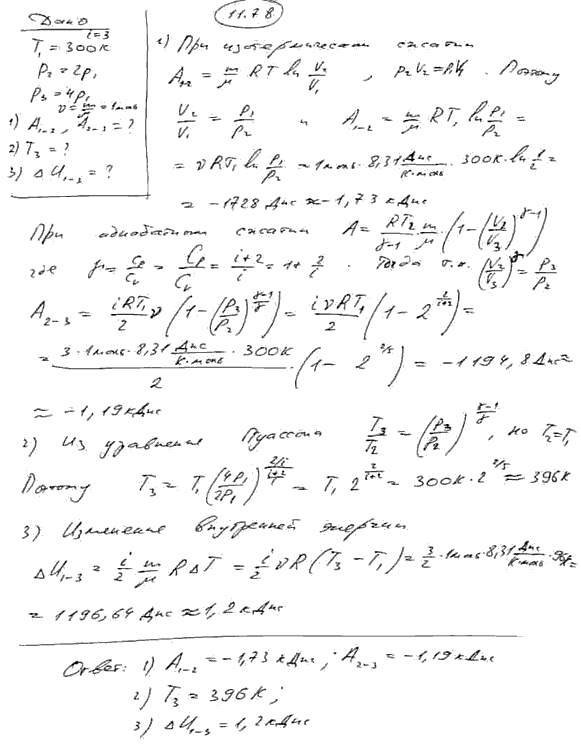 11.78
Дано
i=3
T₁ = 300К
P₂ = 2P₁
P₃ = 4P₁
ν = m/μ = 1моль
1) A₁₋₂, A₂₋₃ = ?
2) T₃ = ?
3) ΔU₁₋₃ = ?
1) При изотермическом сжатии
A₁₋₂ = m/μ RT ln V₂/V₁ , P₂V₂ = P₁V₁ . Поэтому
V₂/V₁ = P₁/P₂ и A₁₋₂ = m/μ RT₁ ln P₁/P₂ =
= νRT₁ ln P₁/P₂ = 1моль · 8,31 Дж/К·моль · 300К · ln 1/2 =
= -1728 Дж ≈ -1,73 кДж
При адиабатном сжатии A = RT₂/(γ-1) m/μ · (1 - (V₂/V₃)^(γ-1))
где γ = Cp/Cv = Cp/Cv = (i+2)/i = 1 + 2/i . Тогда т.к. (V₂/V₃)^γ = P₃/P₂
A₂₋₃ = iRT₁/2 ν (1 - (P₃/P₂)^((γ-1)/γ)) = iνRT₁/2 (1 - 2^(2/(i+2))) =
= (3 · 1моль · 8,31 Дж/К·моль · 300К)/2 · (1 - 2^(2/5)) = -1194,8 Дж ≈
≈ -1,19 кДж
2) Из уравнения Пуассона T₃/T₂ = (P₃/P₂)^((γ-1)/γ), но T₂=T₁
Поэтому T₃ = T₁ (4P₁/2P₁)^((2/i)/((i+2)/i)) = T₁ 2^(2/(i+2)) = 300К · 2^(2/5) ≈ 396К
3) Изменение внутренней энергии
ΔU₁₋₃ = i/2 m/μ RΔT = i/2 νR (T₃ - T₁) = 3/2 · 1моль · 8,31 Дж/К·моль · 96К =
= 1196,64 Дж ≈ 1,2 кДж
Ответ: 1) A₁₋₂ = -1,73 кДж ; A₂₋₃ = -1,19 кДж
2) T₃ = 396 К ;
3) ΔU₁₋₃ = 1,2 кДж